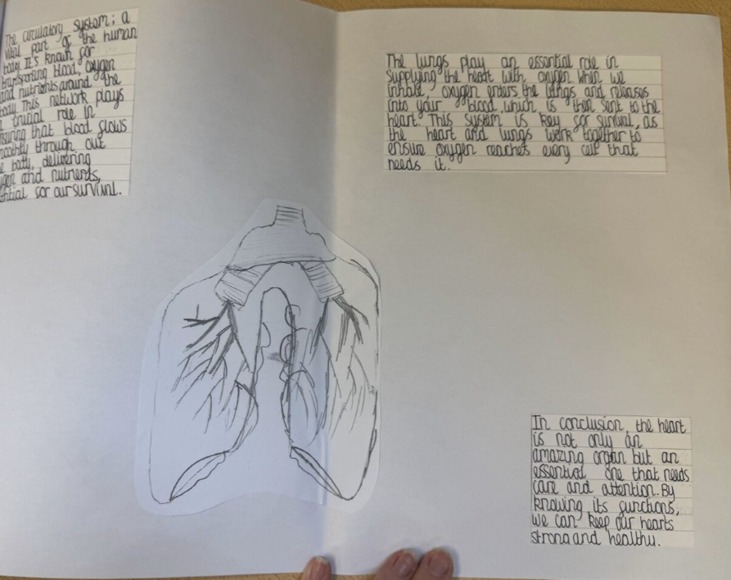 The circulatory system; a
vital part of the human
body. It's known for
transporting blood, oxygen
and nutrients around the
body. This network plays
crucial role in
ensuring that blood flows
smoothly through out
body, delivering
and nutrients,
for our survival.
The lungs play an essential role in
supplying the heart with oxygen when we
inhale, oxygen enters the lungs and releases
into your blood, which is then sent to the
heart. This system is key for survival, as
the heart and lungs work together to
ensure oxygen reaches every cell that
needs it.
In conclusion, the heart
is not only an
amazing organ but an
essential one that needs
care and attention. By
knowing its functions,
we can keep our hearts
strong and healthy.